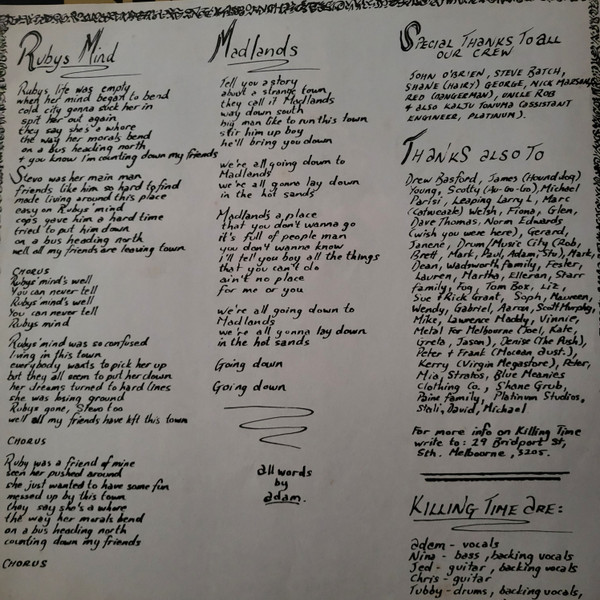 Rubys Mind
Rubys, life was empty
when her mind began to bend
cold city gonna suck her in
spit her out again
they say she's a whore
the way her morals bend
on a bus heading north
+ you know I'm counting down my friends
Stevo was her main man
friends like him so hard to find
made living around this place
easy on Rubys mind
cops gave him a hard time
tried to put him down
on a bus heading north
well all my friends are leaving town
CHORUS
Rubys mind's well
You can never tell
Rubys mind's well
You can never tell
Rubys mind
Rubys' mind was so confused
living in this town
everybody wants to pick her up
but they all seem to put her down
her dreams turned to hard lines
she was being ground
Rubys gone, Stevo too
well all my friends have left this town
CHORUS
Ruby was a friend of mine
seen her pushed around
she just wanted to have some fun
messed up by this town
they say she's a whore
the way her morals bend
on a bus heading north
counting down my friends
CHORUS
Madlands
Tell you a story
about a strange town,
they call it Madlands
way down south
big man like to run this town
stir him up boy
he'll bring you down
we're all going down to
Madlands
we're all gonna lay down
in the hot sands
Madlands a place
that you don't wanna go
it's full of people man
you don't wanna know
I'll tell you boy all the things
that you can't do
ain't no place
for me or you
we're all going down to
Madlands
we're all gonna lay down
in the hot sands
Going down
Going down
all words
by
adam.
Special Thanks To all
our crew
John O'Brien, Steve Batch,
Shane (Hairy) George, Nick Marsan,
Red (Dangerman), Uncle Rob
& also Kalju Tonuma (assistant
engineer, Platinum).
Thanks also To
Drew Basford, James (Hound dog)
Young, Scotty (Au-Go-Go), Michael
Parisi, Leaping Larry L, Marc
(Catweazle) Welsh, Fiona, Glen,
Dave Thomas, Norm Edwards
(wish you were here), Gerard,
Janene, Drum/Music City (Rob,
Brett, Mark, Paul, Adam, Stu), Mark,
Dean, Wadsworth family, Fester,
Lauren, Martha, Ellerena, Starr
family, Fog, Tom Box, Liz,
Sue & Rick Grant, Soph, Maureen,
Wendy, Gabriel, Aaron, Scott Murphy,
Mike, Lawrence Maddy, Vinnie,
Metal For Melbourne (Joel, Kate,
Greta, Jason), Denise (The Push),
Peter + Frank (Mocean Aust.),
Kerry (Virgin Megastore), Peter,
Mia, Stratos, Blue Meanies
Clothing Co., Shane Grub,
Paint family, Platinum Studios,
Stali, David, Michael
For more info on Killing Time
write to: 29 Bridport St,
Sth. Melbourne, 3205.
Killing Time are:
adem - vocals
Nina - bass, backing vocals
Jed - guitar, backing vocals
Chris - guitar
Tubby - drums, backing vocals,